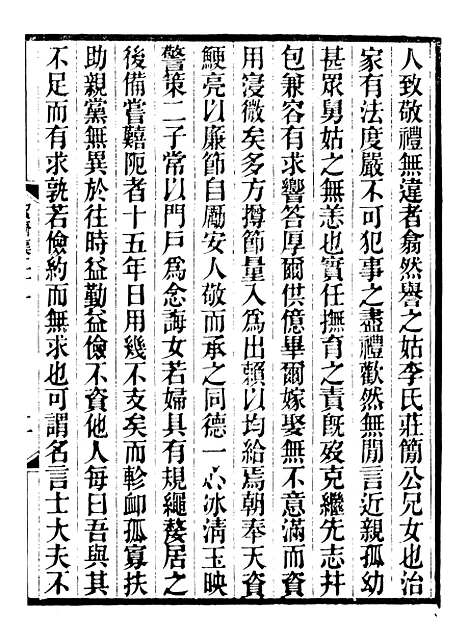 人致敬禮無違者翕然譽之姑李氏莊簡公兄女也治
家有法度嚴不可犯事之盡禮歡然無閒言近親孤幼
甚眾舅姑之無恙也實任撫育之責旣歿克繼先志幷
包兼容有求響答厚爾供億畢爾嫁娶無不意滿而資
用寖微矣多方撙節量入爲出賴以均給焉朝奉天資
鯁亮以廉節自勵安人敬而承之同德一心冰清玉映
警策二子常以門戶爲念誨女若婦具有規繩嫠居之
後備嘗囏阨者十五年日用幾不支矣而軫卹孤寡扶
助親黨無異於往時益勤益儉不資他人每曰吾與其
不足而有求孰若儉約而無求也可謂名言士大夫不